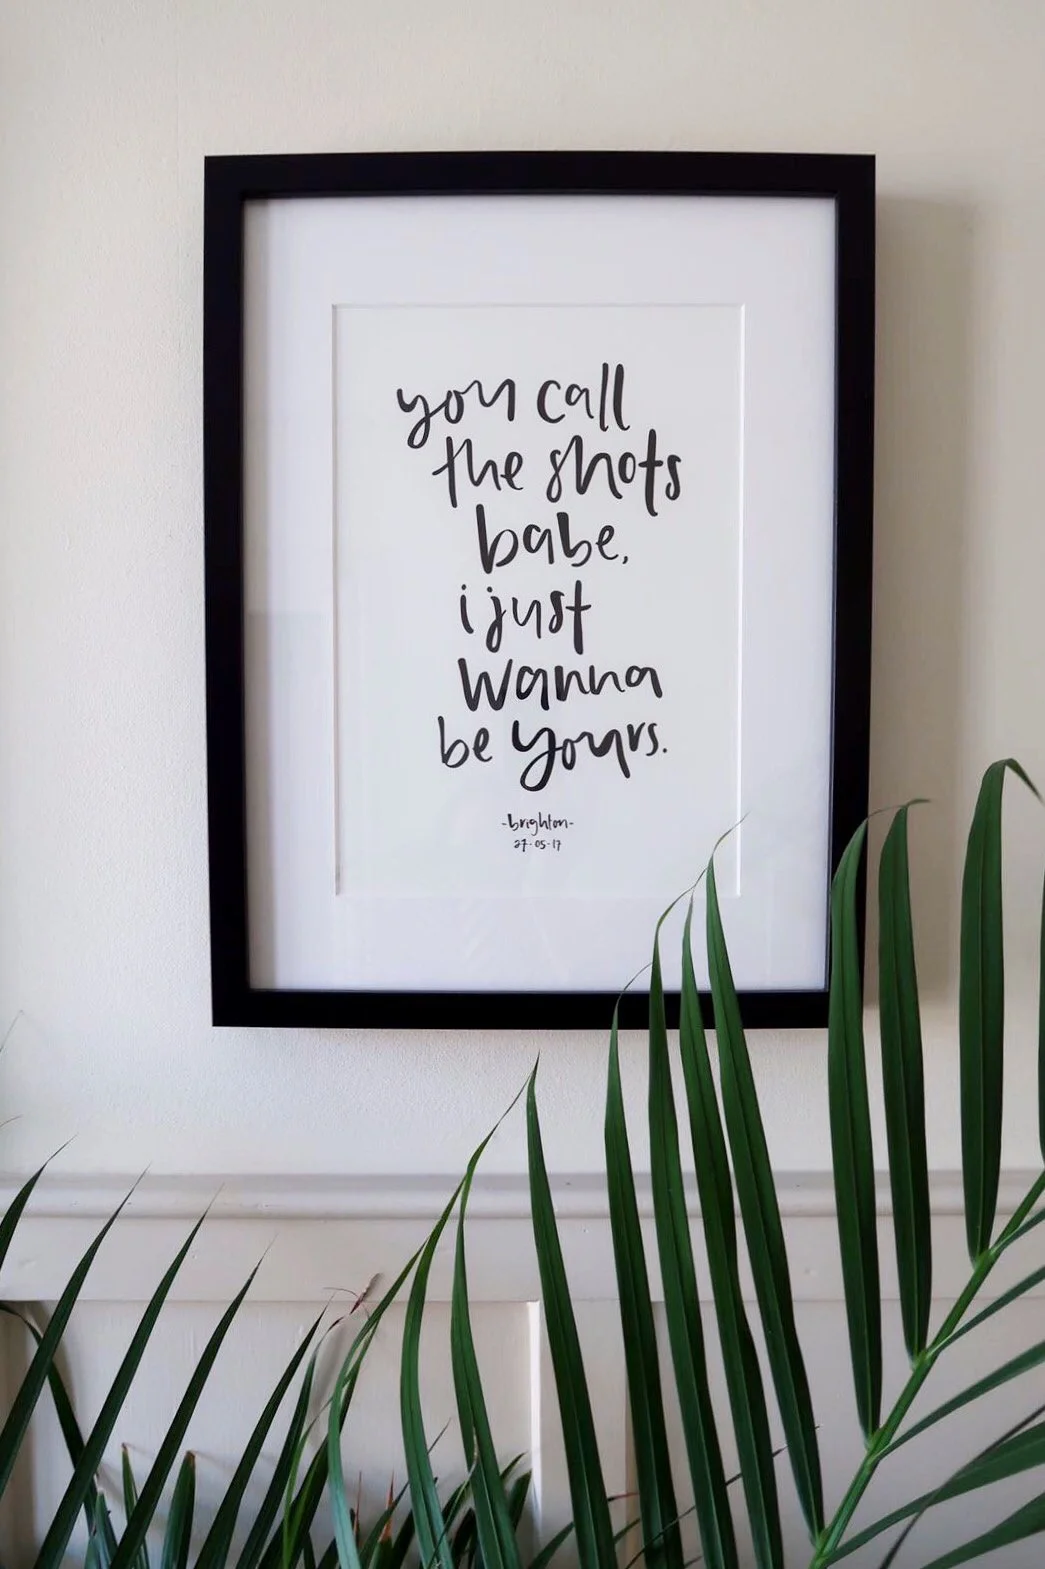 you call
the shots
babe,
i just
wanna
be yours.
-brighton-
27-05-17